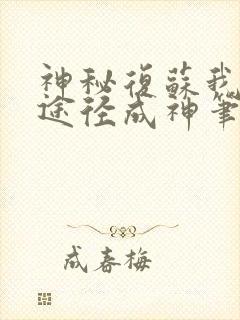 神秘復蘇我
途径成神筆
成春梅